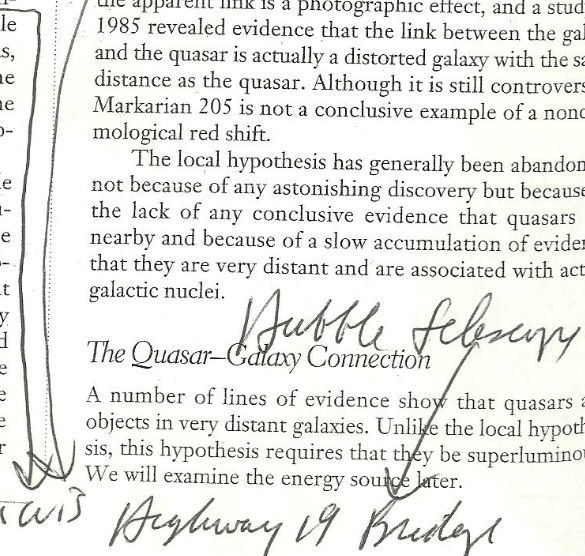 le
s,
ne
ne
o-
e
u-
e
o-
t
y
d
e
e
e
r
the apparent link is a photographic effect, and a stud
1985 revealed evidence that the link between the gal
and the quasar is actually a distorted galaxy with the sa
distance as the quasar. Although it is still controvers
Markarian 205 is not a conclusive example of a nonc
mological red shift.
The local hypothesis has generally been abandon
not because of any astonishing discovery but because
the lack of any conclusive evidence that quasars
nearby and because of a slow accumulation of eviden
that they are very distant and are associated with act
galactic nuclei.
Hubble Telescope
The Quasar–Galaxy Connection
A number of lines of evidence show that quasars a
objects in very distant galaxies. Unlike the local hypoth
sis, this hypothesis requires that they be superlumino
We will examine the energy source later.
Highway 19 Bridge